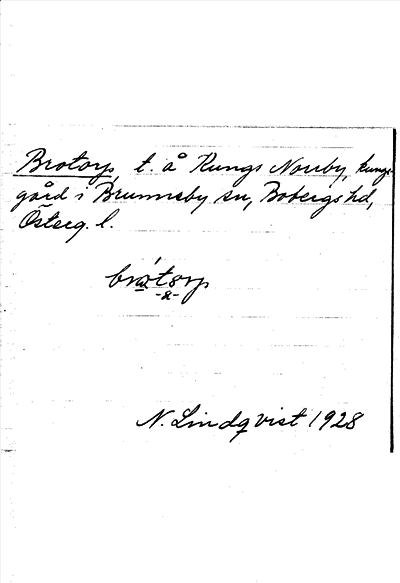 Brotorp, t. å Kungs Norrby, kungs-
gård i Brunneby sn, Bobergs hd,
Österg. l.
N. Lindqvist 1928